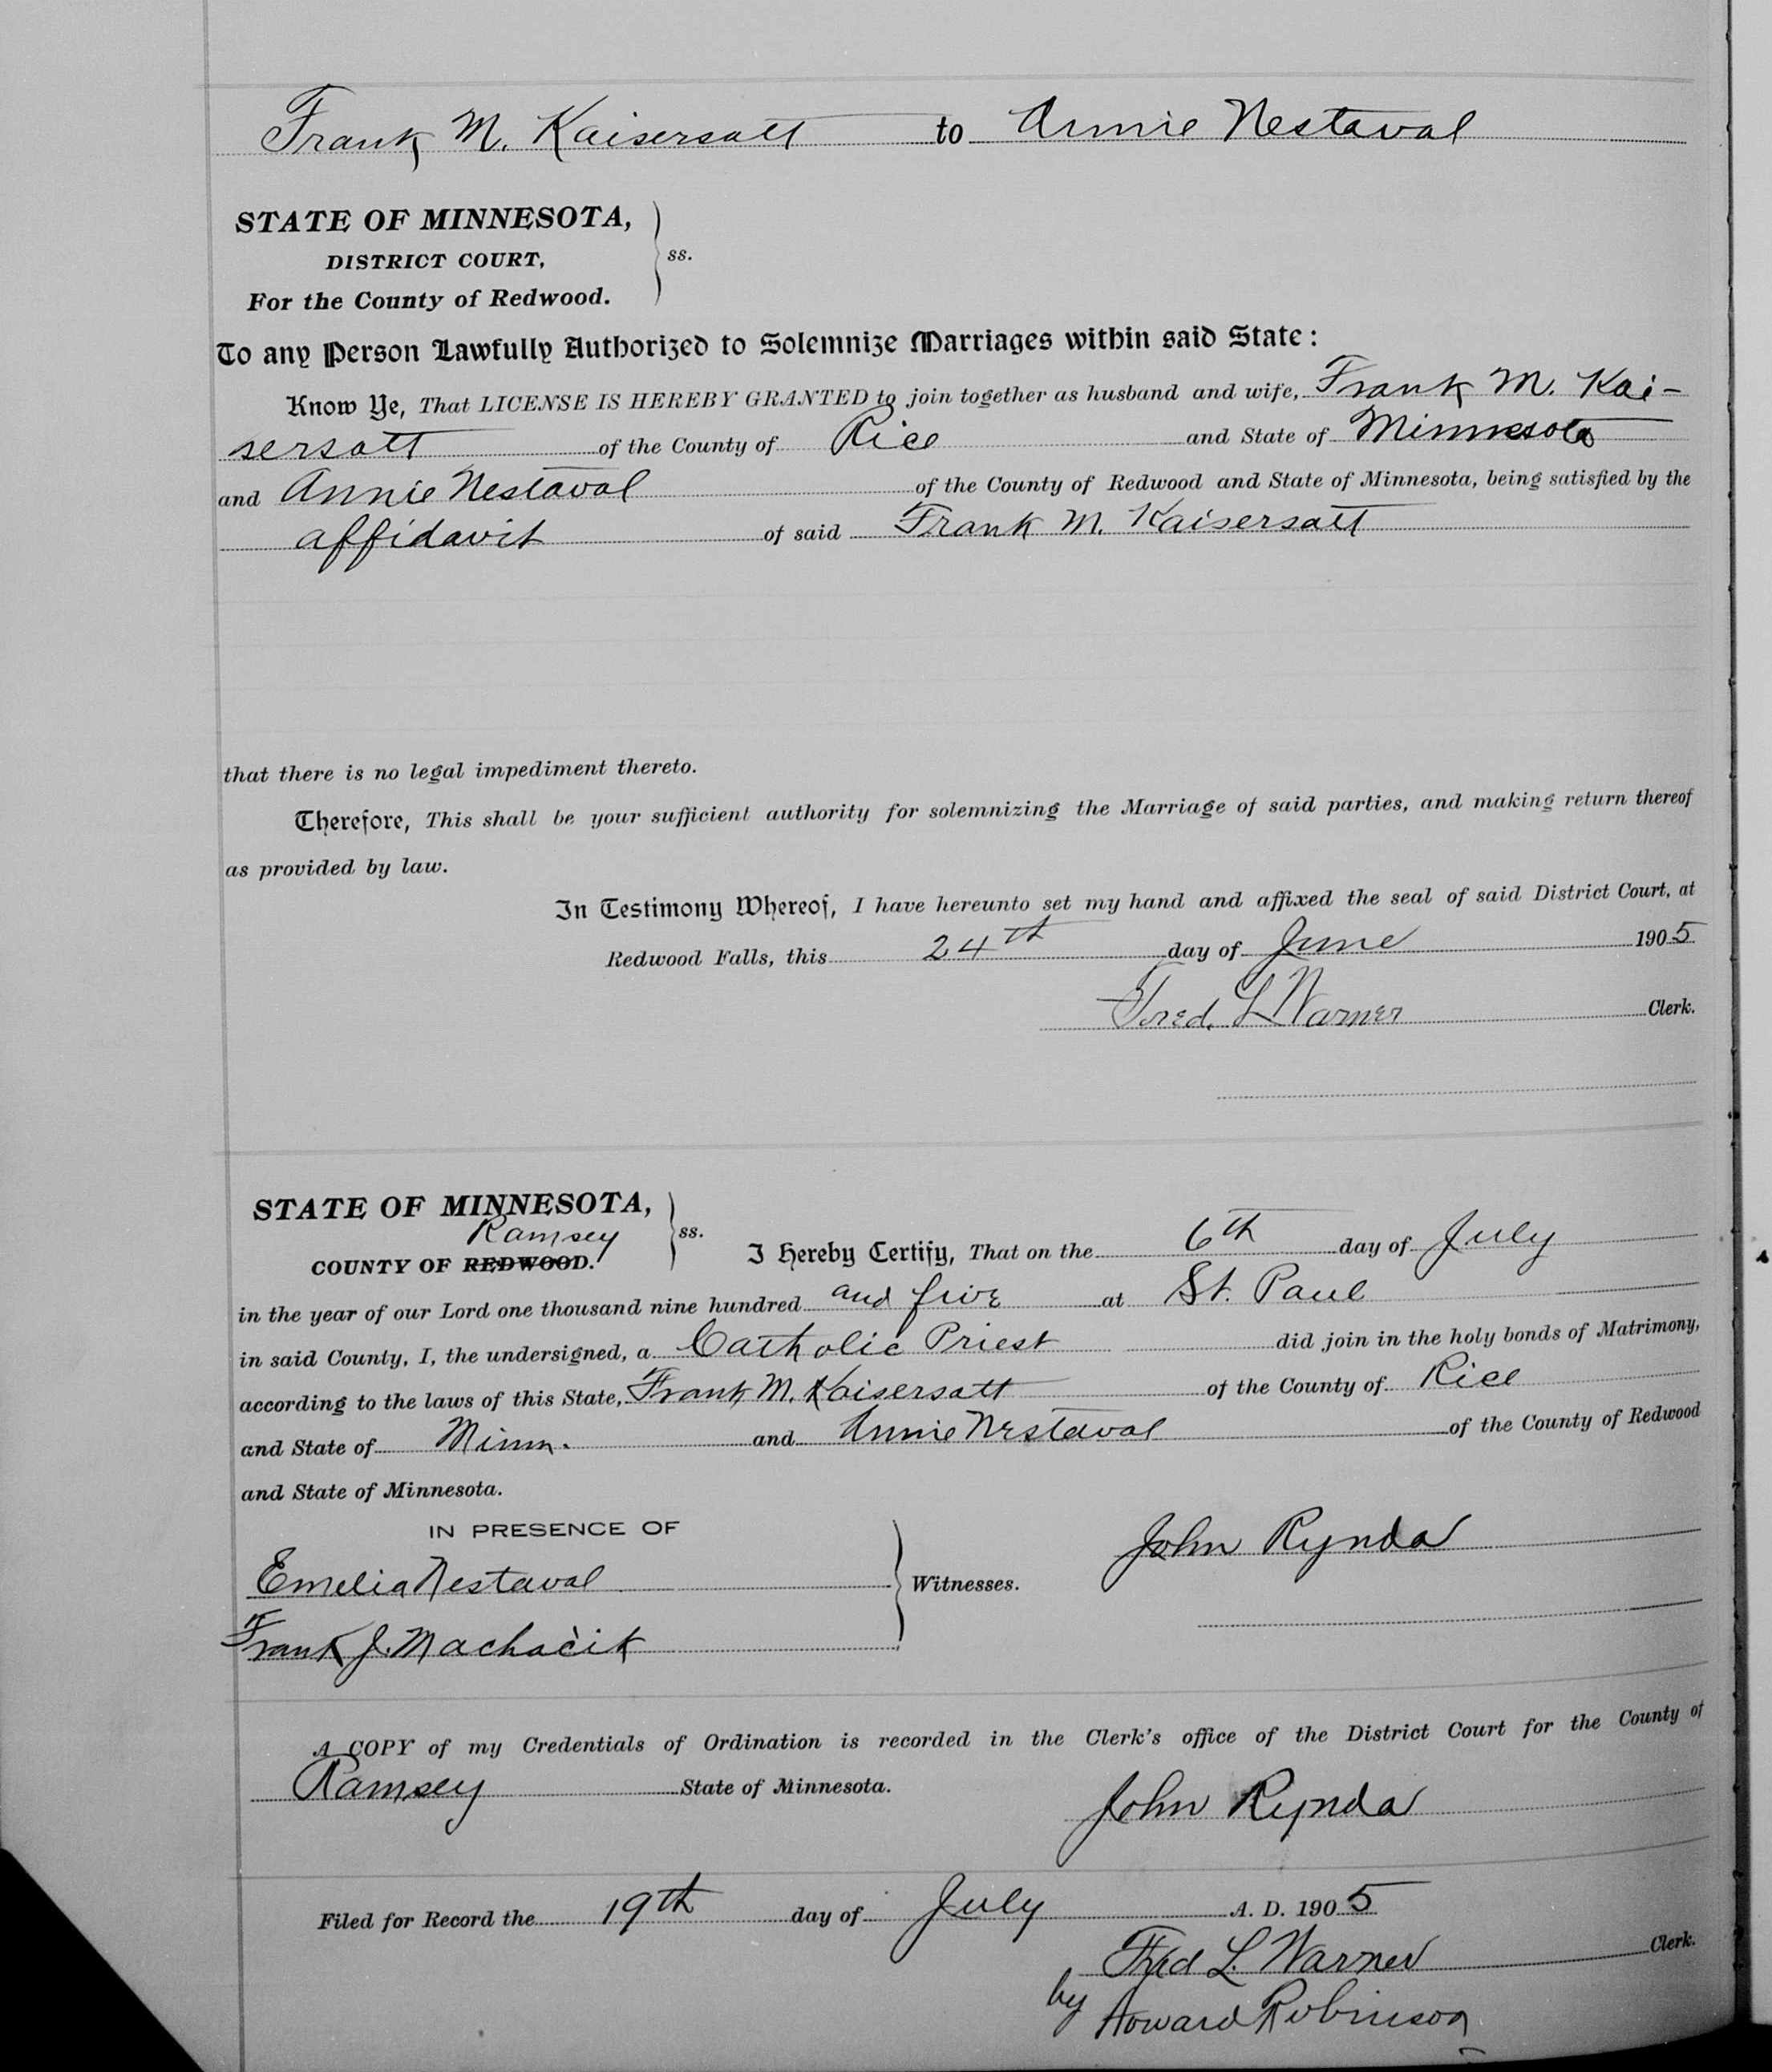 Frank M. Kaisersatt to Annie Nestaval
STATE OF MINNESOTA,
DISTRICT COURT, ss.
For the County of Redwood.
To any Person Lawfully Authorized to Solemnize Marriages within said State:
Know Ye, That LICENSE IS HEREBY GRANTED to join together as husband and wife, Frank M. Kai-
sersatt of the County of Rice and State of Minnesota
and Annie Nestaval of the County of Redwood and State of Minnesota, being satisfied by the
affidavit of said Frank M. Kaisersatt
that there is no legal impediment thereto.
Therefore, This shall be your sufficient authority for solemnizing the Marriage of said parties, and making return thereof
as provided by law.
In Testimony Whereof, I have hereunto set my hand and affixed the seal of said District Court, at
Redwood Falls, this 24th day of June 1905
Fred. L Warner Clerk.
STATE OF MINNESOTA, ss.
Ramsey
COUNTY OF REDWOOD. I Hereby Certify, That on the 6th day of July
in the year of our Lord one thousand nine hundred and five at St. Paul
in said County, I, the undersigned, a Catholic Priest did join in the holy bonds of Matrimony,
according to the laws of this State, Frank M. Kaisersatt of the County of Rice
and State of Minn. and Annie Nestaval of the County of Redwood
and State of Minnesota.
IN PRESENCE OF
John Rynda
Emelia Nestaval Witnesses.
Frank J. Machačik
A COPY of my Credentials of Ordination is recorded in the Clerk's office of the District Court for the County of
Ramsey State of Minnesota. John Rynda
Filed for Record the 19th day of July A. D. 1905
Fred L. Warner Clerk.
by Howard Robinson